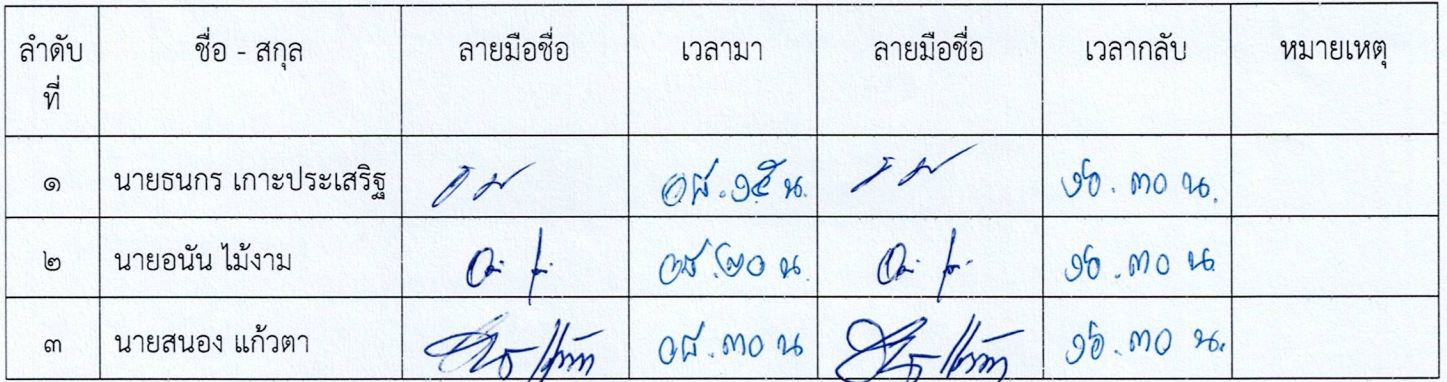 ลำดับที่ ชื่อ - สกุล ลายมือชื่อ เวลามา ลายมือชื่อ เวลากลับ หมายเหตุ
๑ นายธนกร เกาะประเสริฐ ๐๘.๑๕ น. ๑๖.๓๐ น.
๒ นายอนัน ไม้งาม ๐๘.๒๐ น. ๑๖.๓๐ น.
๓ นายสนอง แก้วตา ๐๘.๓๐ น ๑๖.๓๐ น.